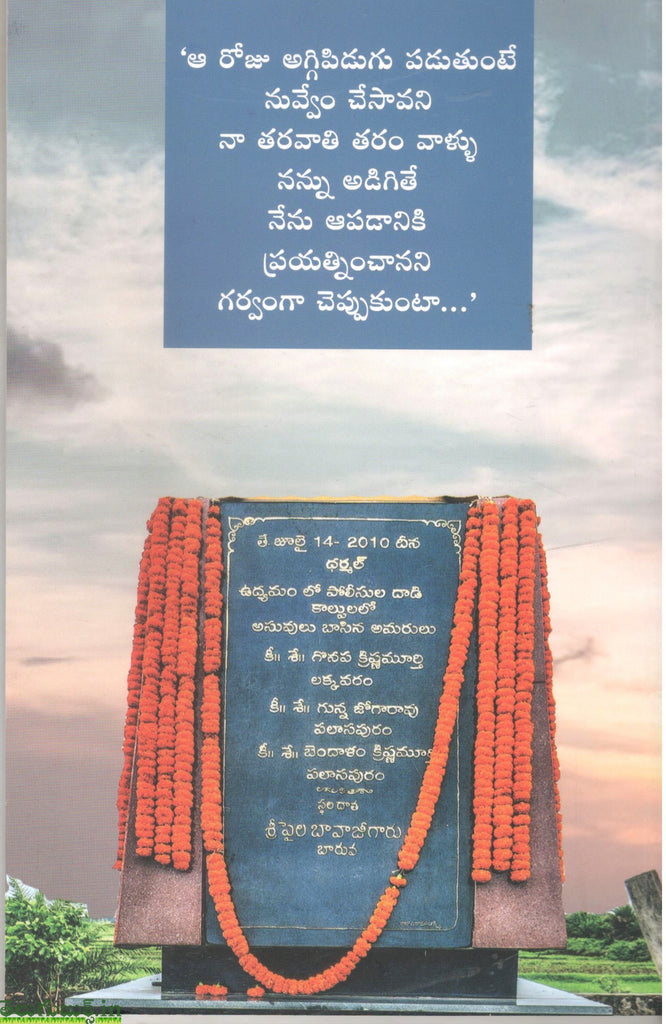 ‘ఆ రోజు అగ్గిపిడుగు పడుతుంటే
నువ్వేం చేసావని
నా తరవాతి తరం వాళ్ళు
నన్ను అడిగితే
నేను ఆపడానికి
ప్రయత్నించానని
గర్వంగా చెప్పుకుంటా...’
తే. జూలై 14- 2010 దీన
థర్మల్
ఉద్యమం లో పోలీసుల దాడి
కాల్పులలో
అసువులు బాసిన అమరులు
కీ॥ శే॥ గొనప క్రిష్ణమూర్తి
లక్కవరం
కీ॥ శే॥ గున్న జోగారావు
పలాసపురం
కీ॥ శే॥ బెందాళం క్రిష్ణమూర్తి
పలాసపురం
స్థల దాత
శ్రీ పైల బావాజీగారు
బారువ